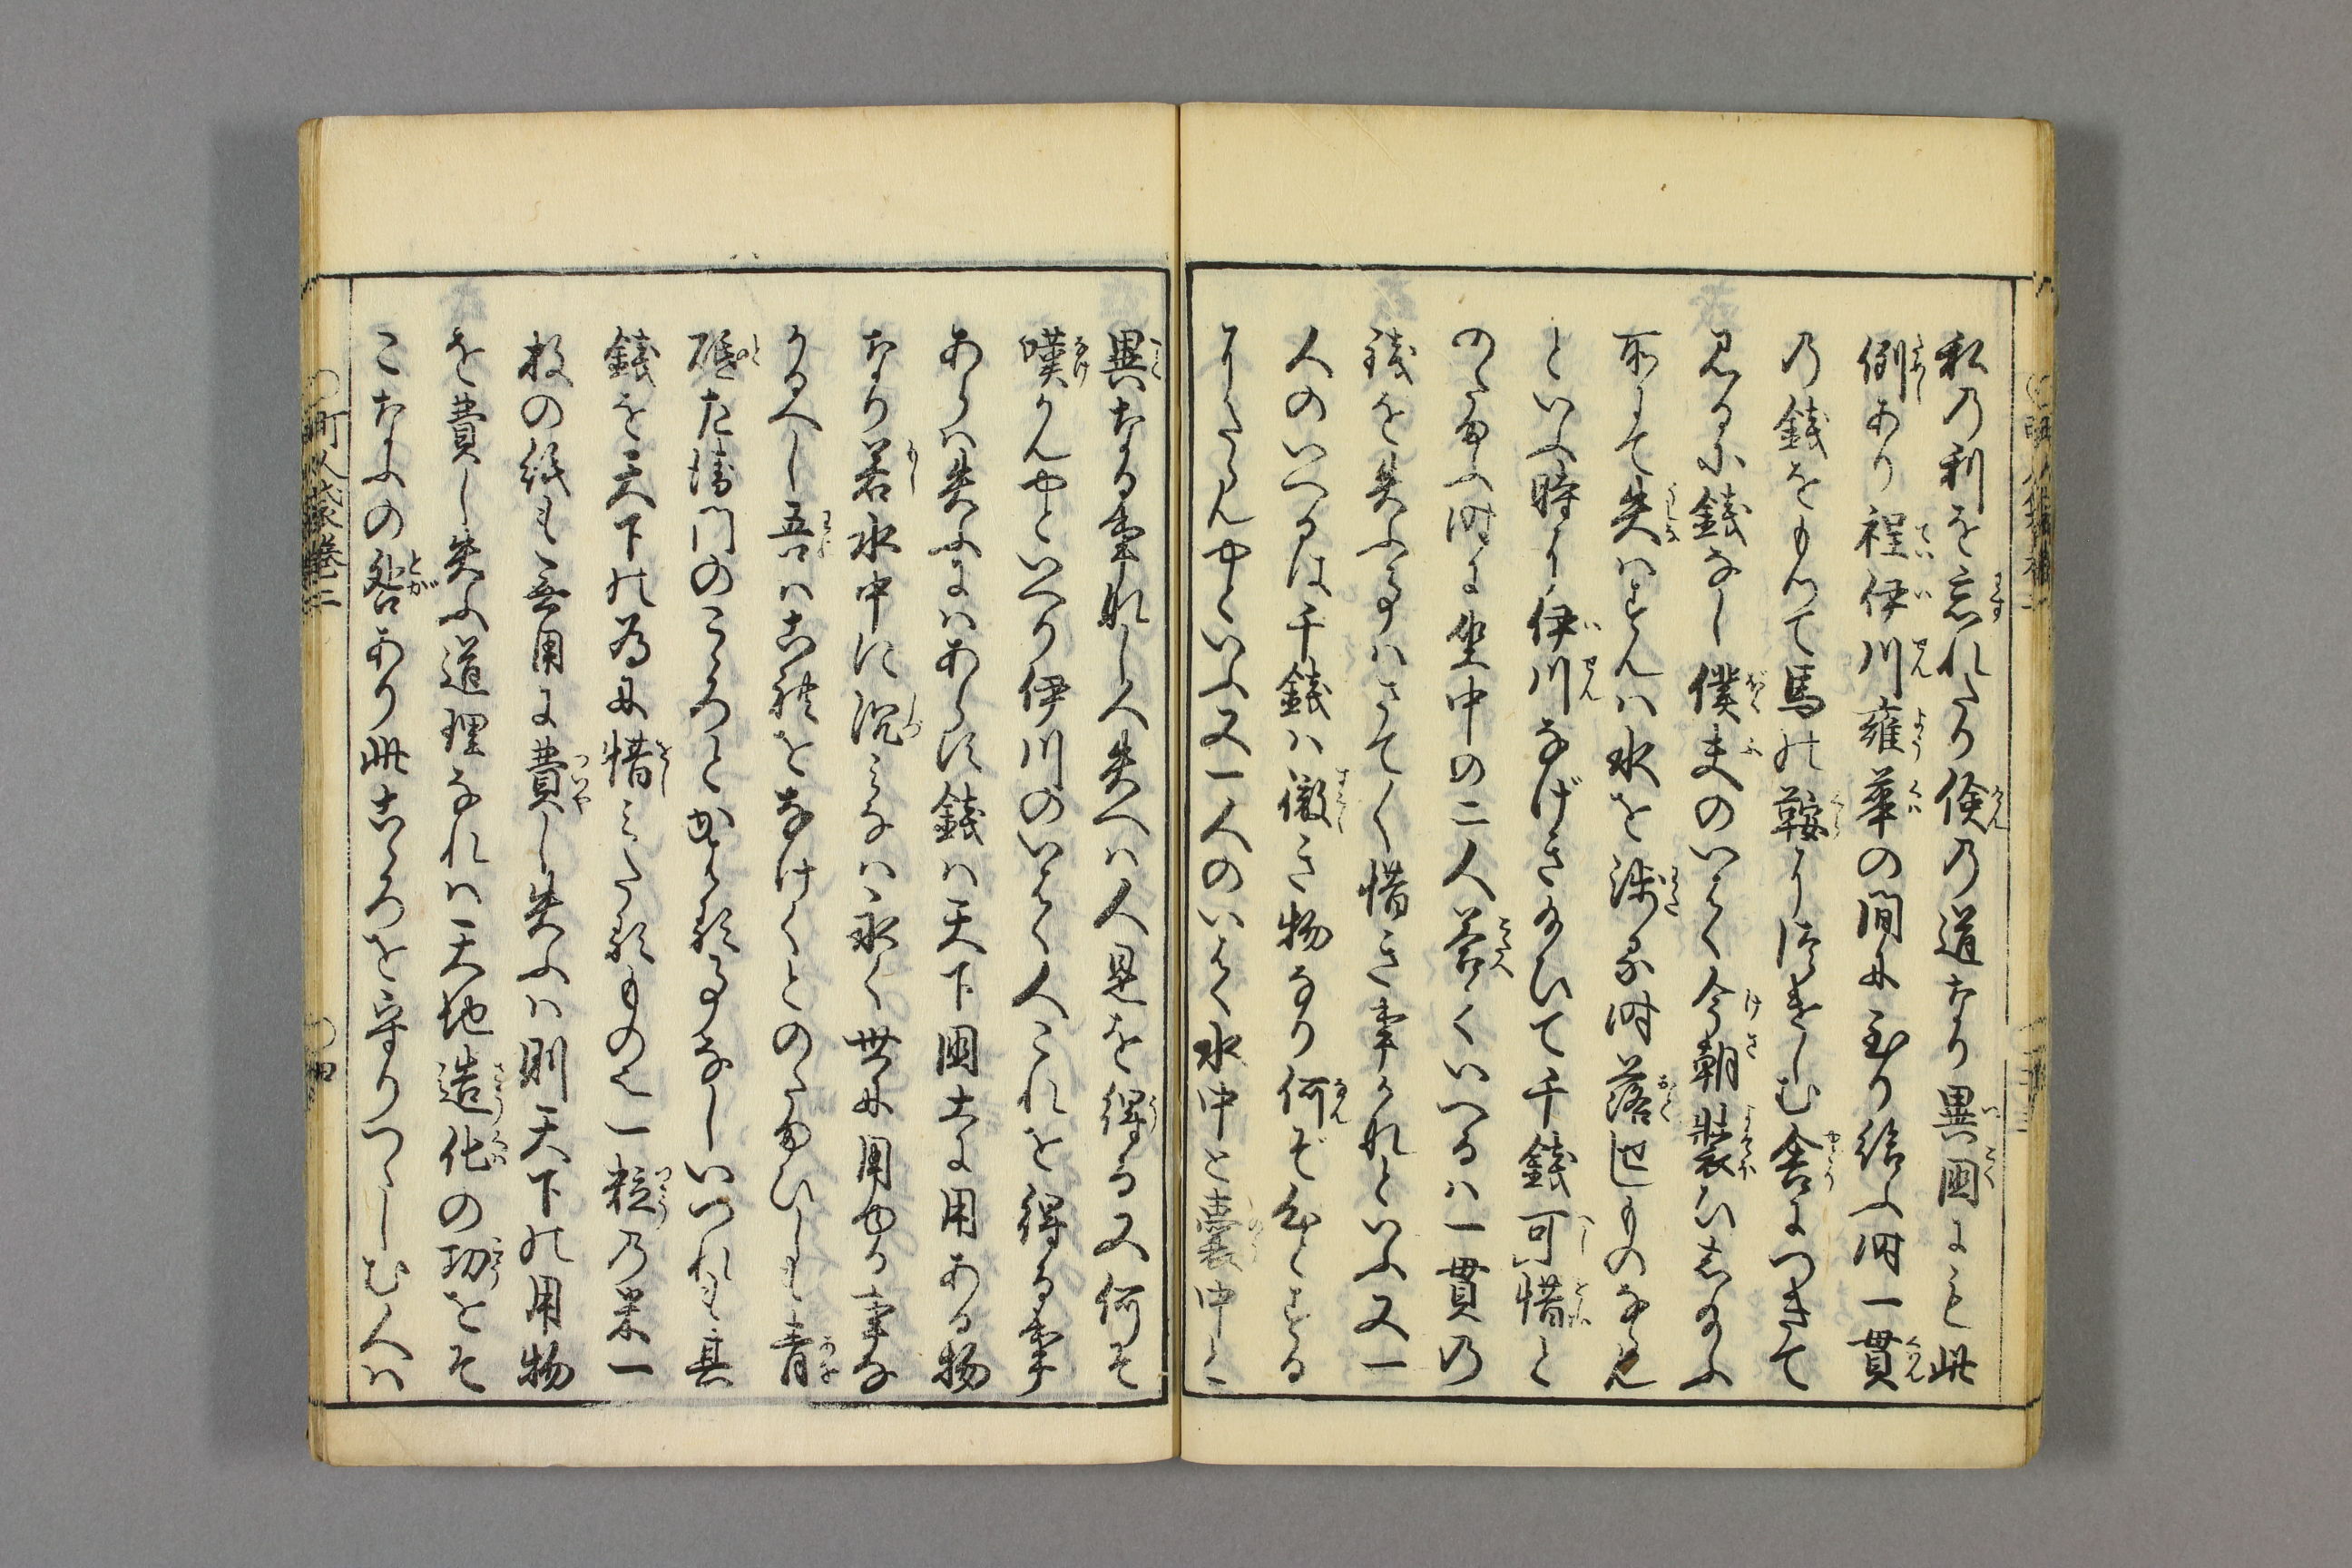 私乃利を忘れたり倹乃道なり異国にも此
例あり程伊川雍華の間に至り給ふ時一貫
乃銭をもつて馬の鞍にはさむ舎につきて
見るに銭なし僕夫のいはく今朝装ひし給ふ
所にて失はずんは水を渉る時落せしものならん
といふ時に伊川なげき給ひて千銭可惜と
のたまふ時に坐中の二人答ていへるは一貫の
銭を失ふ事はさて〱惜き事かなといふ又一
人のいへるは千銭は微き物なり何ぞ心とする
にたらんやといふ又一人のいはく水中と嚢中と
異なる事なし人失へは人是を得る又何そ
嘆かんやといへり伊川のいはく人これを得る事
あらは失ふにはあらす銭は天下国土に用ある物
なり若水中に沈みなは永く世に用ゆる事な
かるへし吾は是をなけくとのたまひしも青
砥左衛門のこころとかはる事なしいつれも其
銭を天下の為に惜みたるもの也一粒乃米一
枚の紙も無用に費し失ふは則天下の用物
を費し失ふ道理なれは天地造化の功をそ
こなふの咎あり此こころを守りつゝしむ人は
町人嚢巻二